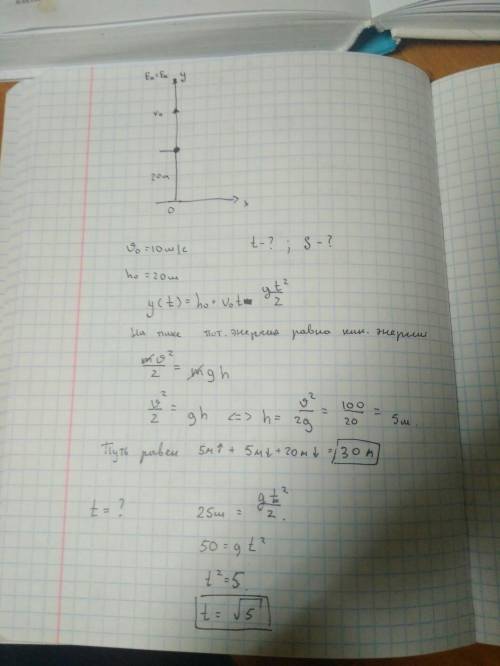 Eп=Eк y
v₀
20м
0 x
ϑ₀ = 10м/с t-? ; S-?
h₀ = 20м
y(t) = h₀ + v₀t - gt²/2
На пике пот. энергия равна кин. энергии
mϑ²/2 = mgh
ϑ²/2 = gh <=> h = ϑ²/2g = 100/20 = 5м
Путь равен 5м↑ + 5м↓ + 20м↓ = 30м
t = ? 25м = gt²/2.
50 = gt²
t² = 5
t = √5